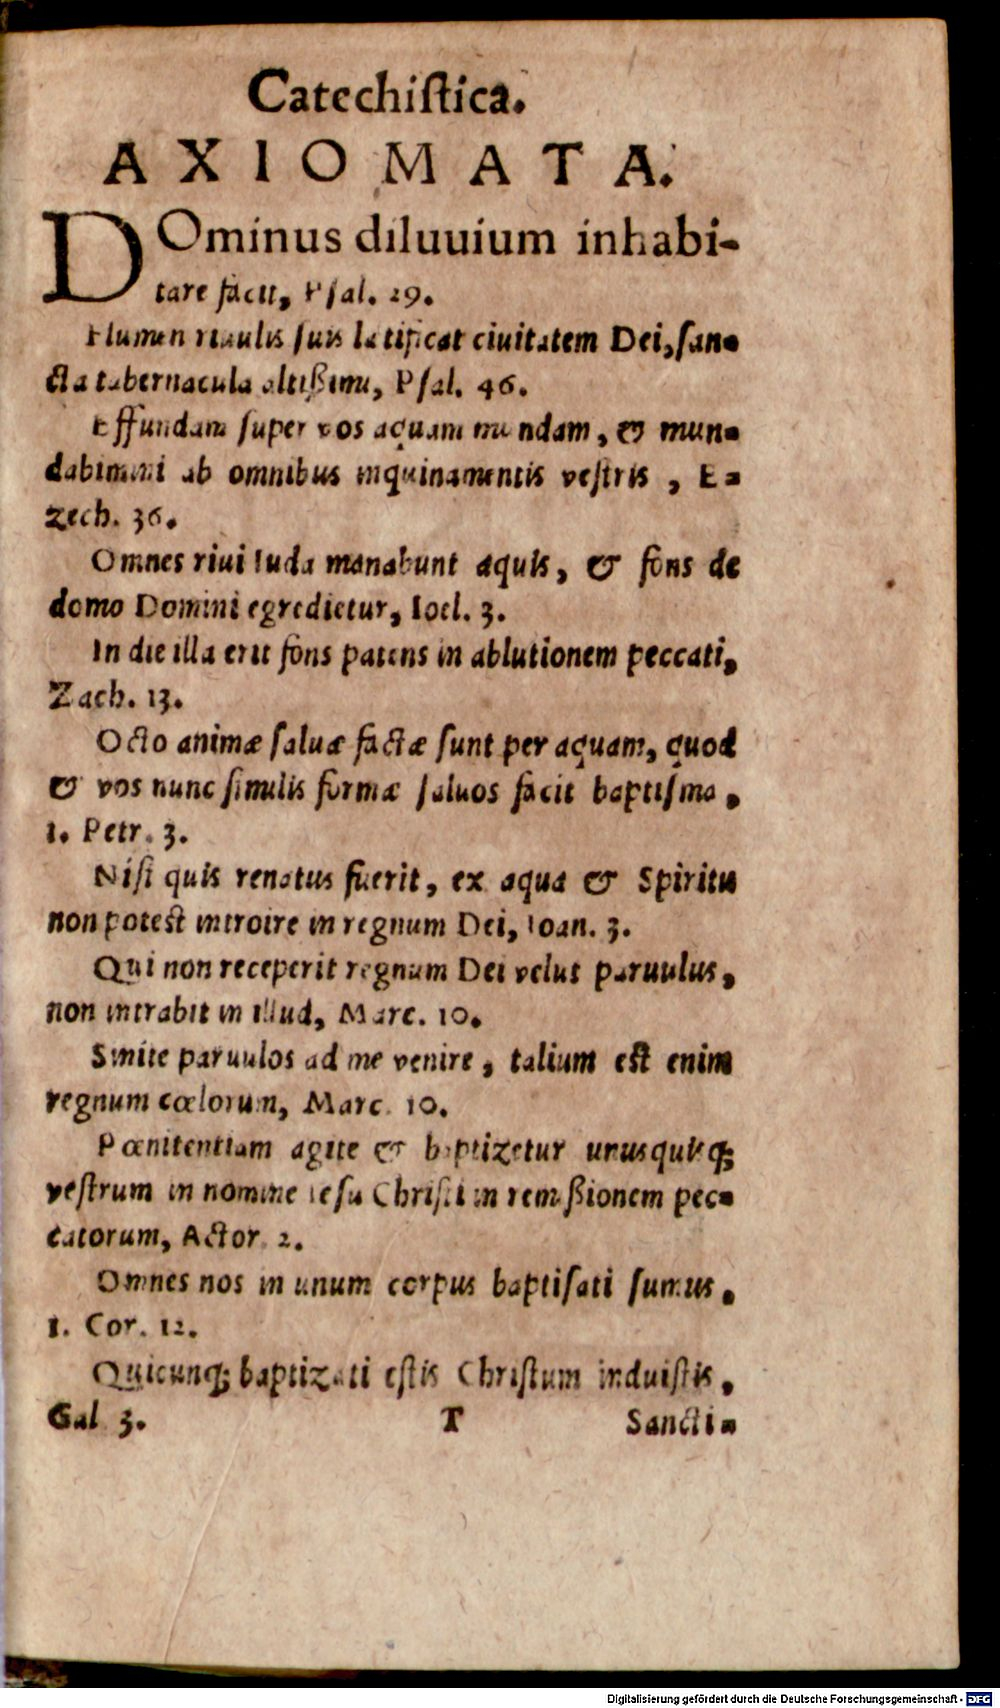 Catechistica.
AXIOMATA.
DOminus diluuium inhabi-
tare facit, Psal. 29.
Flumen riuulis suis lætificat ciuitatem Dei, san-
cta tabernacula altißimi, Psal. 46.
Effundam super vos aquam mundam, & mun-
dabimini ab omnibus inquinamentis vestris, E-
zech. 36.
Omnes riui Iuda manabunt aquis, & fons de
domo Domini egredietur, Ioel. 3.
In die illa erit fons patens in ablutionem peccati,
Zach. 13.
Octo animæ saluæ factæ sunt per aquam, quod
& vos nunc similis formæ saluos facit baptisma,
1. Petr. 3.
Nisi quis renatus fuerit, ex aqua & Spiritu
non potest introire in regnum Dei, Ioan. 3.
Qui non receperit regnum Dei velut paruulus,
non intrabit in illud, Marc. 10.
Sinite paruulos ad me venire, talium est enim
regnum cœlorum, Marc. 10.
Pœnitentiam agite & baptizetur unusquisq;
vestrum in nomine Iesu Christi in remißionem pec-
catorum, Actor. 2.
Omnes nos in unum corpus baptisati sumus,
1. Cor. 12.
Quicunq; baptizati estis Christum induistis,
Gal. 3. T Sancti-
Digitalisierung gefördert durch die Deutsche Forschungsgemeinschaft - DFG